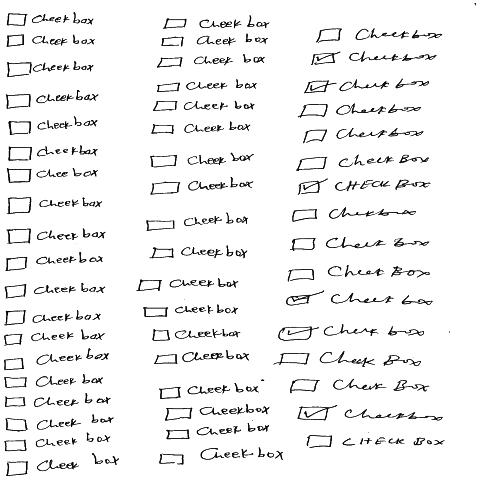 Checkbox
Checkbox
Checkbox
Checkbox
Checkbox
Checkbox
Checkbox
Checkbox
Checkbox
Checkbox
Checkbox
Checkbox
Check box
Check box
Check box
Check box
Check box
Check box
Check box
Check box
Check box
Check box
Check box
Check box
Check box
Check box
Checkbox
Check box
Check box
Check box
Check box
Checkbox
Checkbox
Check box
Checkbox
Check box
Check box
Checkbox
Checkbox
Check box
Checkbox
Checkbox
Check Box
CHECK BOX
Checkbox
Check Box
Check Box
Check box
Check box
Check Box
Check Box
Checkbox
CHECK BOX